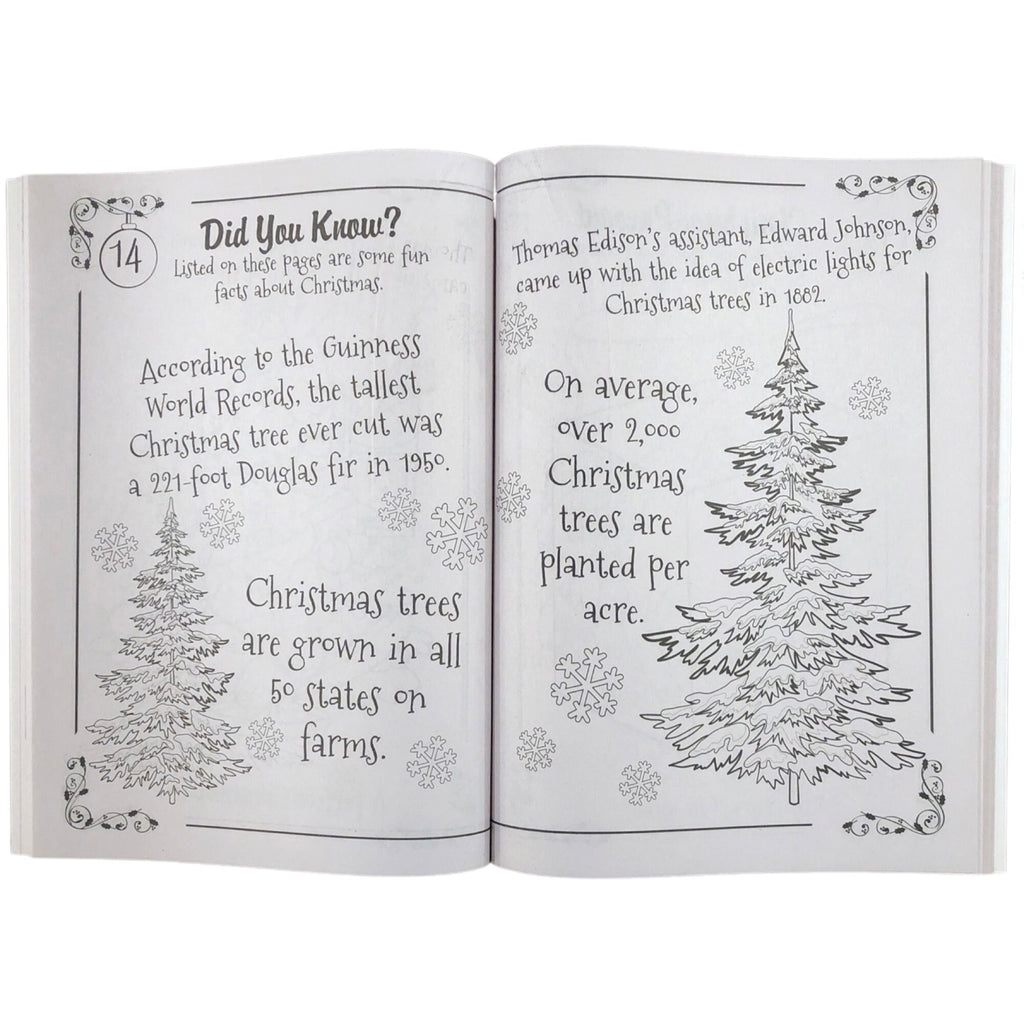 14
Did You Know?
Listed on these pages are some fun
facts about Christmas.
According to the Guinness
World Records, the tallest
Christmas tree ever cut was
a 221-foot Douglas fir in 1950.
Christmas trees
are grown in all
50 states on
farms.
Thomas Edison's assistant, Edward Johnson,
came up with the idea of electric lights for
Christmas trees in 1882.
On average,
over 2,000
Christmas
trees are
planted per
acre.